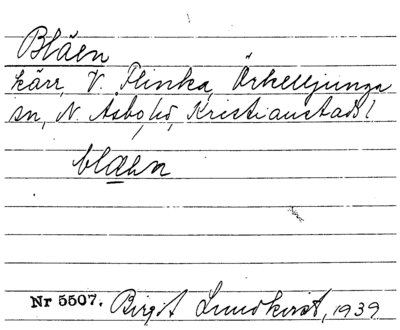 Bläen
kärr, V. Flinka, Örkelljunga
sn, N. Åsbo hd, Kristianstads l
blæen
Nr 5507. Birgit Lundkvist, 1939